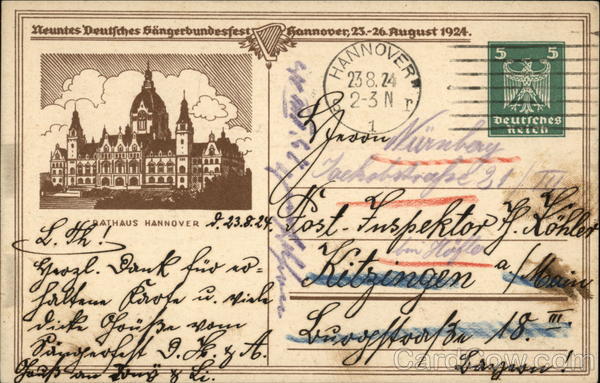 Neuntes Deutsches Sängerbundesfest Hannover, 23.-26. August 1924.
HANNOVER
23 8. 24
2-3 N
r
1
5 5
Deutsches
Reich
RATHAUS HANNOVER
d. 23.8.24.
L. Th!
Herzl. Dank für er-
haltene Karte u. viele
dicke Grüße vom
Sängerfest D. H. & A.
Gruß an Tony & Li.
Herrn
Nürnberg
Post-Inspektor H. Köhler
Kitzingen a/Main
Burgstraße 18. III.
Bayern!
CardCow.com